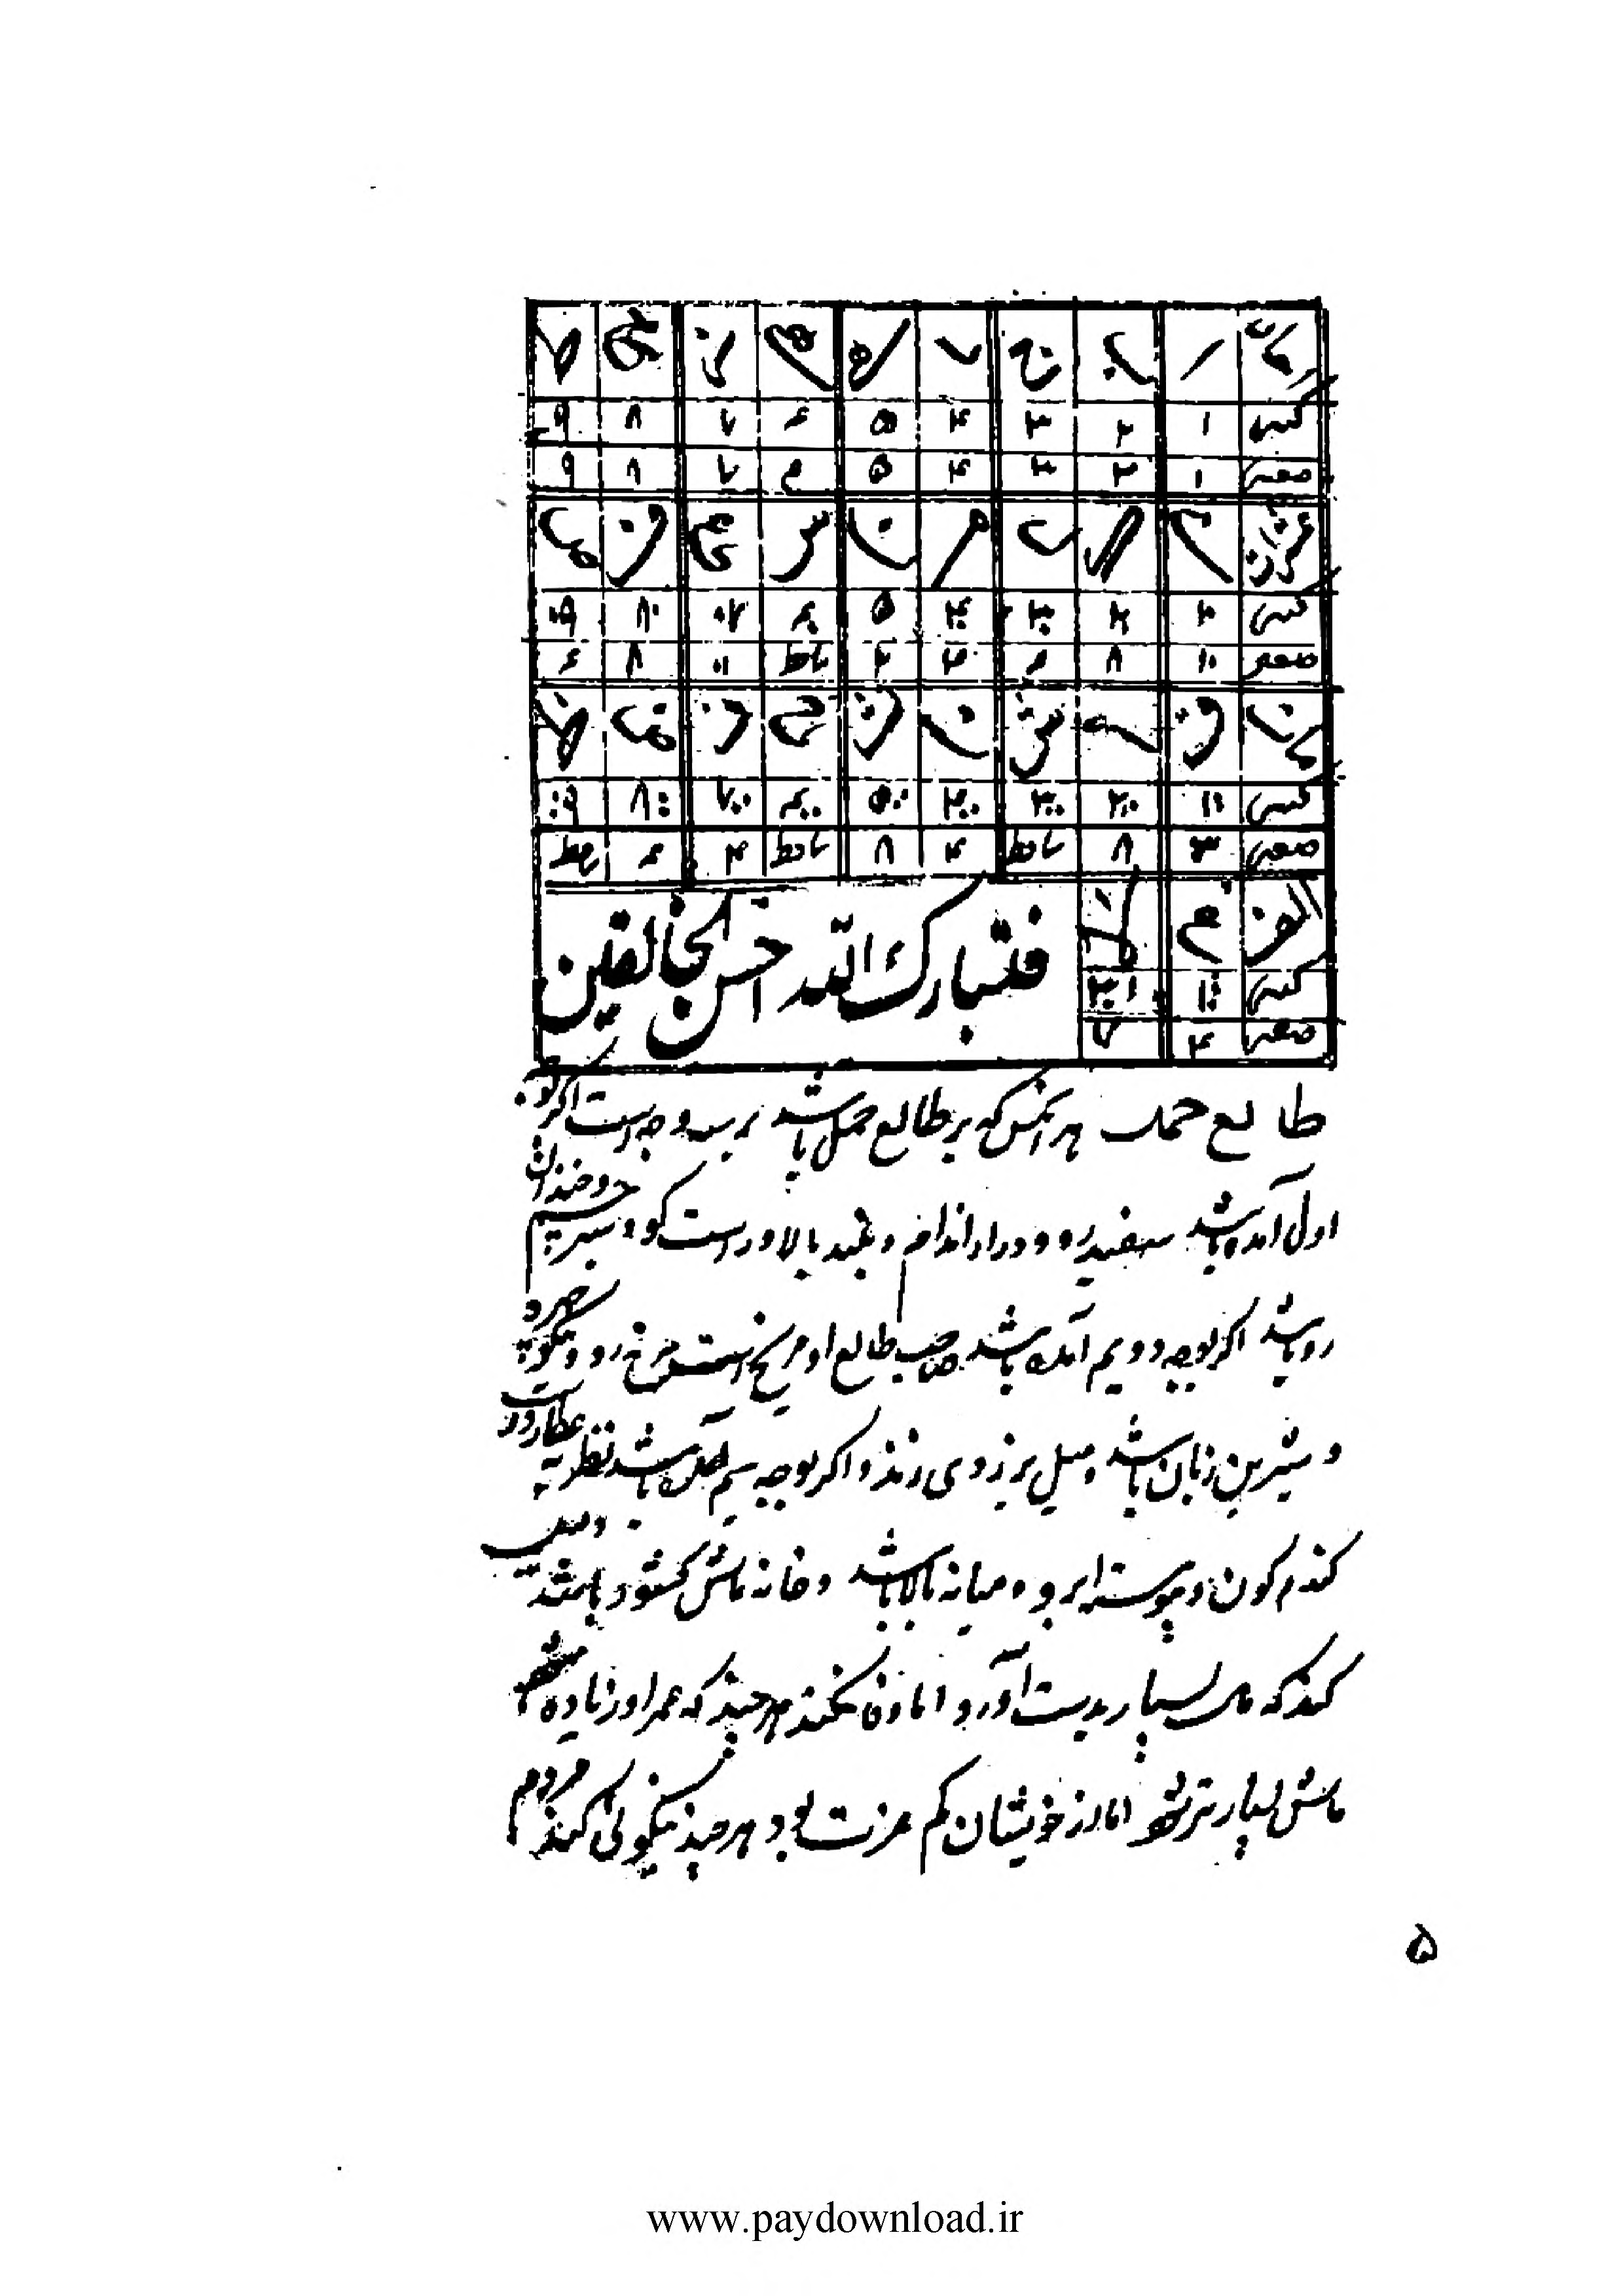 ا ب ج د ه و ز ح ط
کبیر ۱ ۲ ۳ ۴ ۵ ۶ ۷ ۸ ۹
صغیر ۱ ۲ ۳ ۴ ۵ ۶ ۷ ۸ ۹
عشرات ی ک ل م ن س ع ف ص
کبیر
صغیر ۱۰ ۸ ۶ ۴ ۲ ساقط ۸ ۶
ق ر ش ت ث خ ذ ض ظ
کبیر
صغیر ۸ ساقط ۴ ۸ ساقط ۴ ۶ ساقط
الف غ
کبیر
صغیر ۴
فتبارک الله احسن الخالقین
طالع حمل هر آنکس که بر طالع حمل باشد بر سه وجه است اگر بوجه
اول آمده باشد سفید رو و دراز اندام و بلند بالا و راست گو و سبز چشم و خندان
رو باشد اگر بوجه دویم آمده باشد صاحب طالع او مریخ است سرخ رو و نیکو چهره
و شیرین زبان باشد و میل بر زودی زند و اگر بوجه سیم آمده باشد نظر به عطارد است
گندم گون و پیوسته ابرو و میانه بالا باشد و خانه مالش گشوده باشد
کند که مال بسیار بدست آورد اما وفا نکند هر چند که عمر او زیاده شود
مالش بسیارتر شود اما از خویشان کم عزت بود هر چند نیکوئی کند مردم
۵
www.paydownload.ir